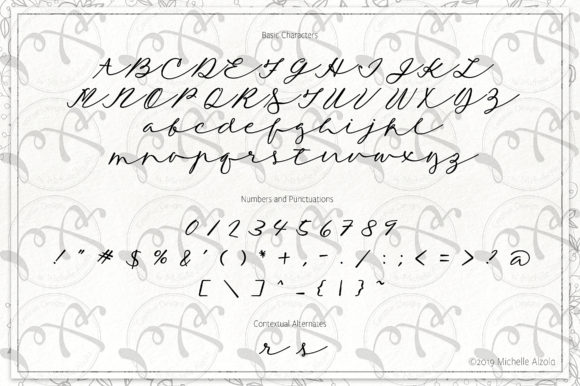 Basic Characters
A B C D E F G H I J K L
M N O P Q R S T U V W X Y Z
a b c d e f g h i j k l
m n o p q r s t u v w x y z
Numbers and Punctuations
0 1 2 3 4 5 6 7 8 9
! " # $ % & ' ( ) * + , - . / : ; < = > ? @
[ \ ] ^ _ { | } ~
Contextual Alternates
r s
©2019 Michelle Alzola